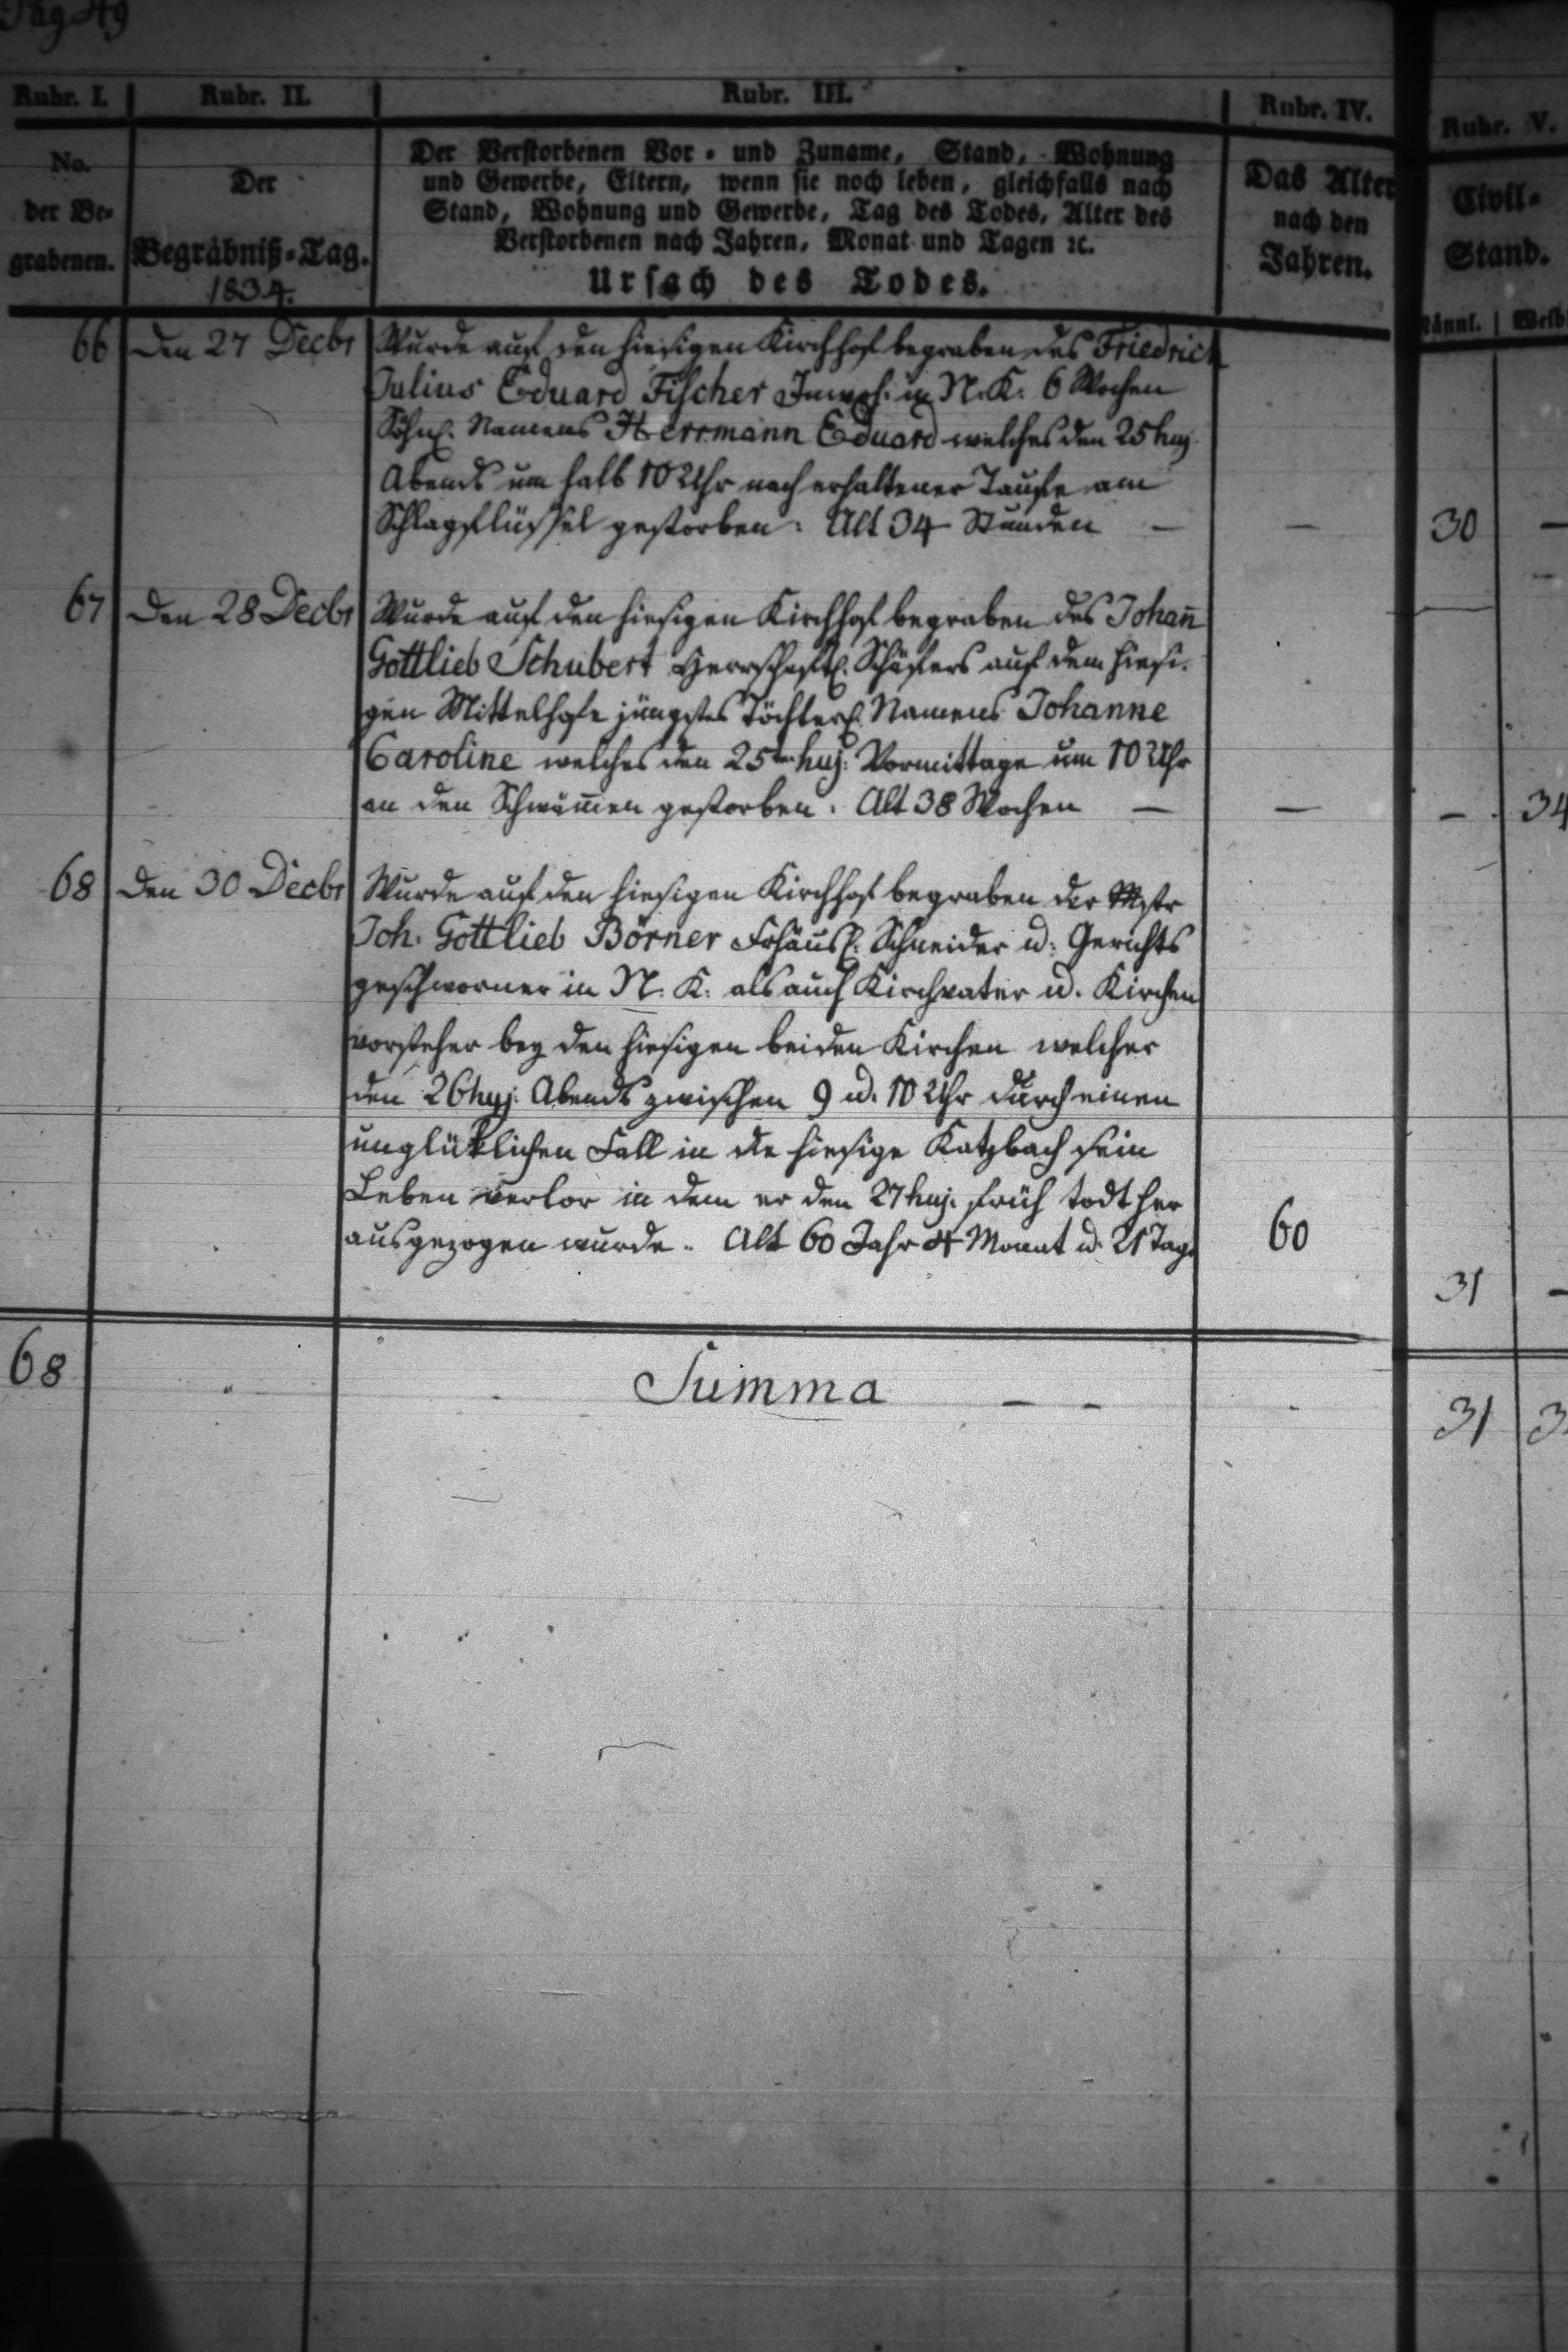 Pag 49
Rubr. I.
Rubr. II.
Rubr. III.
Rubr. IV.
Rubr. V.
No.
der Be-
grabenen.
Der
Begräbniß-Tag.
1834.
Der Verstorbenen Vor- und Zuname, Stand, Wohnung
und Gewerbe, Eltern, wenn sie noch leben, gleichfalls nach
Stand, Wohnung und Gewerbe, Tag des Todes, Alter des
Verstorbenen nach Jahren, Monat und Tagen ꝛc.
Ursach des Todes.
Das Alter
nach den
Jahren.
Civil-
Stand.
Männl. Weib
66 Den 27 Decbr Wurde auf den hiesigen Kirchhof begraben des Friedrich
Julius Eduard Fischer Inwoh. in N. K. 6 Wochen
Söhnl. Namens Herrmann Eduard welches den 25 huj.
Abends um halb 10 Uhr nach erhaltener Taufe am
Schlagflüssel gestorben: Alt 34 Stunden — — 30 —
67 Den 28 Decbr Wurde auf den hiesigen Kirchhof begraben des Johan̄
Gottlieb Schubert Herrschaftl. Schäfers auf dem hiesi-
gen Mittelhofe jüngstes Töchterl. Namens Johanne
Caroline welches den 25ten huj: Vormittage um 10 Uhr
an den Schwäm̄en gestorben. Alt 38 Wochen — — — 34
68 Den 30 Decbr Wurde auf den hiesigen Kirchhof begraben der Mstr
Joh. Gottlieb Börner Frhäusl. Schneider u: Gerichts
geschworner in N. K. als auch Kirchvater u. Kirchen
vorsteher bey den hiesigen beiden Kirchen welcher
den 26 huj. Abends zwischen 9 u. 10 Uhr durch einen
unglüklichen Fall in die hiesige Katzbach sein
Leben verlor in dem er den 27 huj. früh todt her
ausgezogen wurde. Alt 60 Jahr 4 Monat u. 21 Tage 60
31 —
68 Summa — — 31